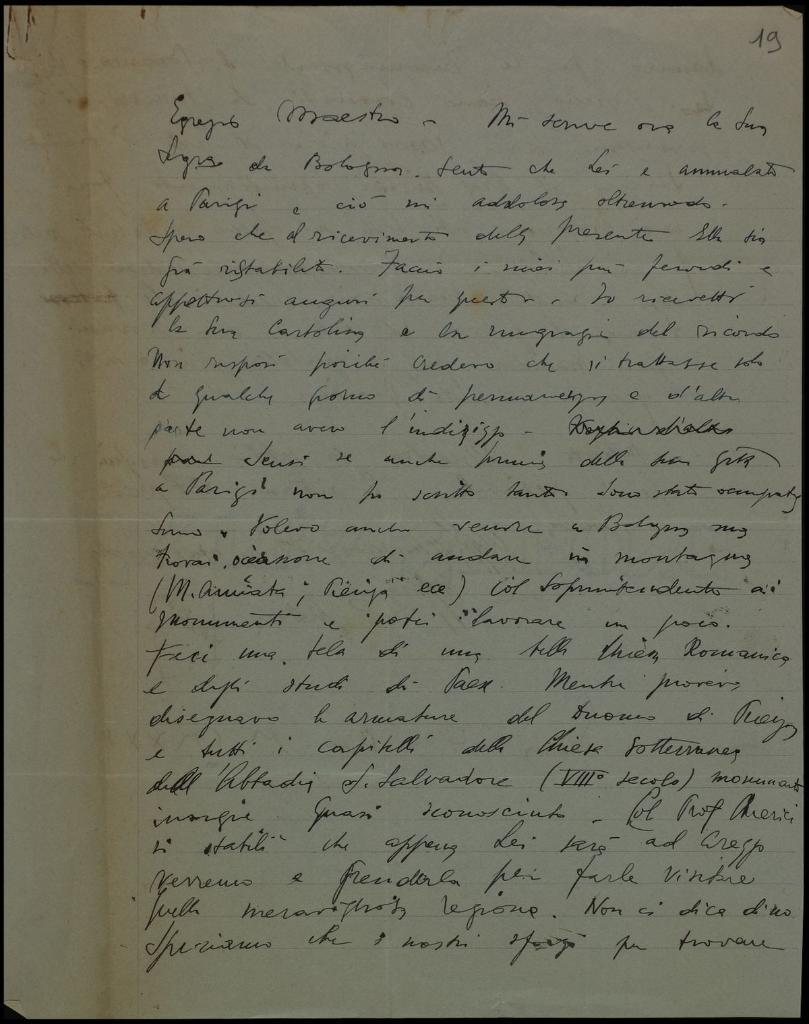 19
Egregio Maestro - Mi scrive ora la Sua
Sigra da Bologna. Sento che Lei è ammalato
a Parigi e ciò mi addolora oltremodo.
Spero che al ricevimento della presente Ella sia
già ristabilito. Faccio i miei più fervidi e
affettuosi auguri per questo. Io ricevetti
la Sua Cartolina e la ringrazio del ricordo
Non risposi poichè credevo che si trattasse solo
di qualche giorno di permanenza e d'altra
parte non avevo l'indirizzo -
Scusi se anche prima della sua gita
a Parigi non ho scritto tanto. Sono stato occupatis
simo. Volevo anche venire a Bologna ma
trovai occasione di andare in montagna
(M. Amiata, Pienza ecc) col Soprintendente ai
Monumenti e potei lavorare un poco.
Feci una tela di una bella Chiesa Romanica
e degli studi di Paex. Mentre pioveva
disegnavo le armature del Duomo di Pienza
e tutti i capitelli della Chiesa Sotterranea
dell'Abbadia S. Salvadore (VIII° secolo) monumento
insigne quasi sconosciuto. Col Prof
si stabilì che appena Lei sarà ad Arezzo
verremo a prenderla per farle visitare
quella meravigliosa regione. Non ci dica di no
Speriamo che i nostri sforzi per trovare